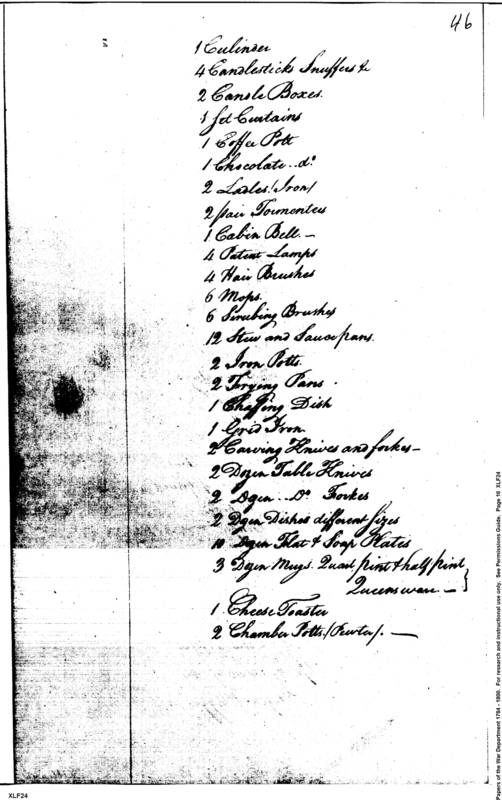 46
1 Culinder
4 Candlesticks Snuffers &c
2 Candle Boxes.
1 set Curtains
1 Coffee Pott
1 Chocolate .. do.
2 Ladles (Iron)
2 pair Tormenters
1 Cabin Bell. —
4 Patent Lamps
4 Hair Brushes
6 Mops.
6 Scrubing Brushes
12 Stew and Sauce pans.
2 Iron Potts.
2 Frying Pans.
1 Chaffing Dish
1 Grid Iron.
2 Carving Knives and forkes —
2 Dozen Table Knives
2 Dozen .. Do. Forkes
2 Dozen Dishes different sizes
10 Dozen Flat & Soap Plates
3 Dozen Mugs. Quart, pint & half pint
Queens ware. — }
1 Cheese Toaster
2 Chamber Potts. (Pewter). —
Papers of the War Department 1784 - 1800. For research and instructional use only. See Permissions Guide. Page 16 XLF24
XLF24